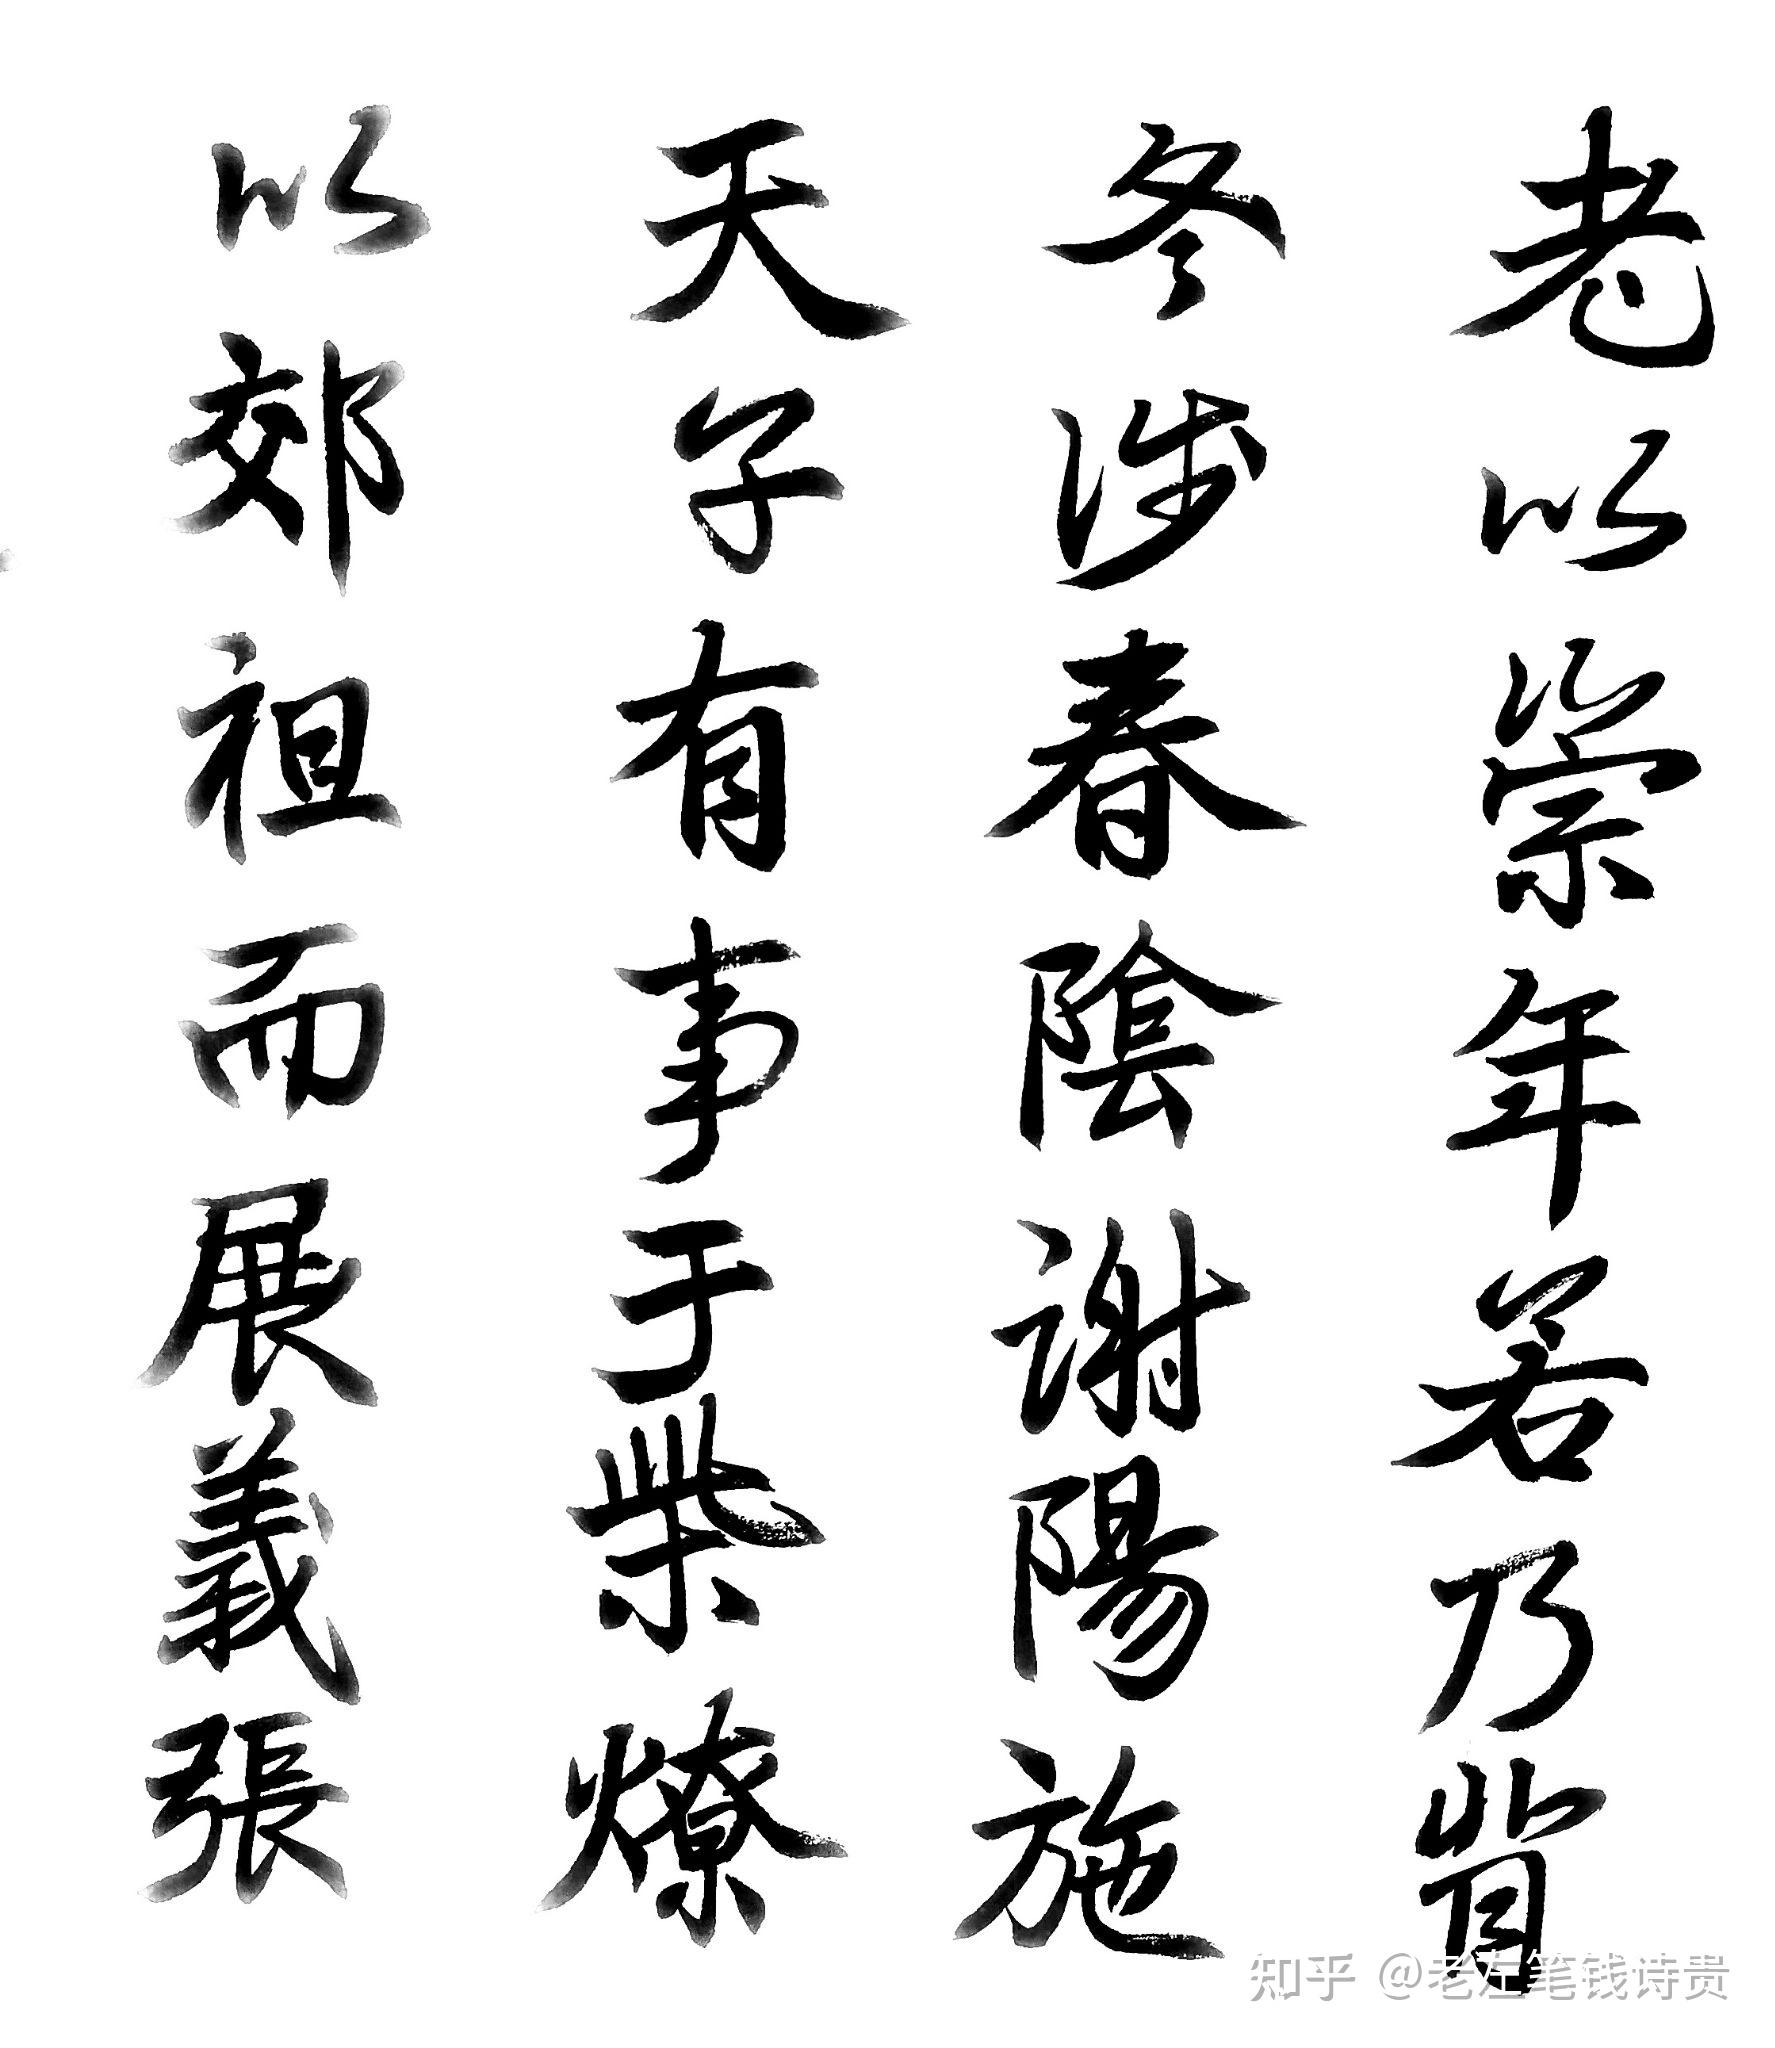 老以崇年若乃背
冬涉春陰謝陽施
天子有事于柴燎
以郊祖而展義張
知乎 @老左笔钱诗贵